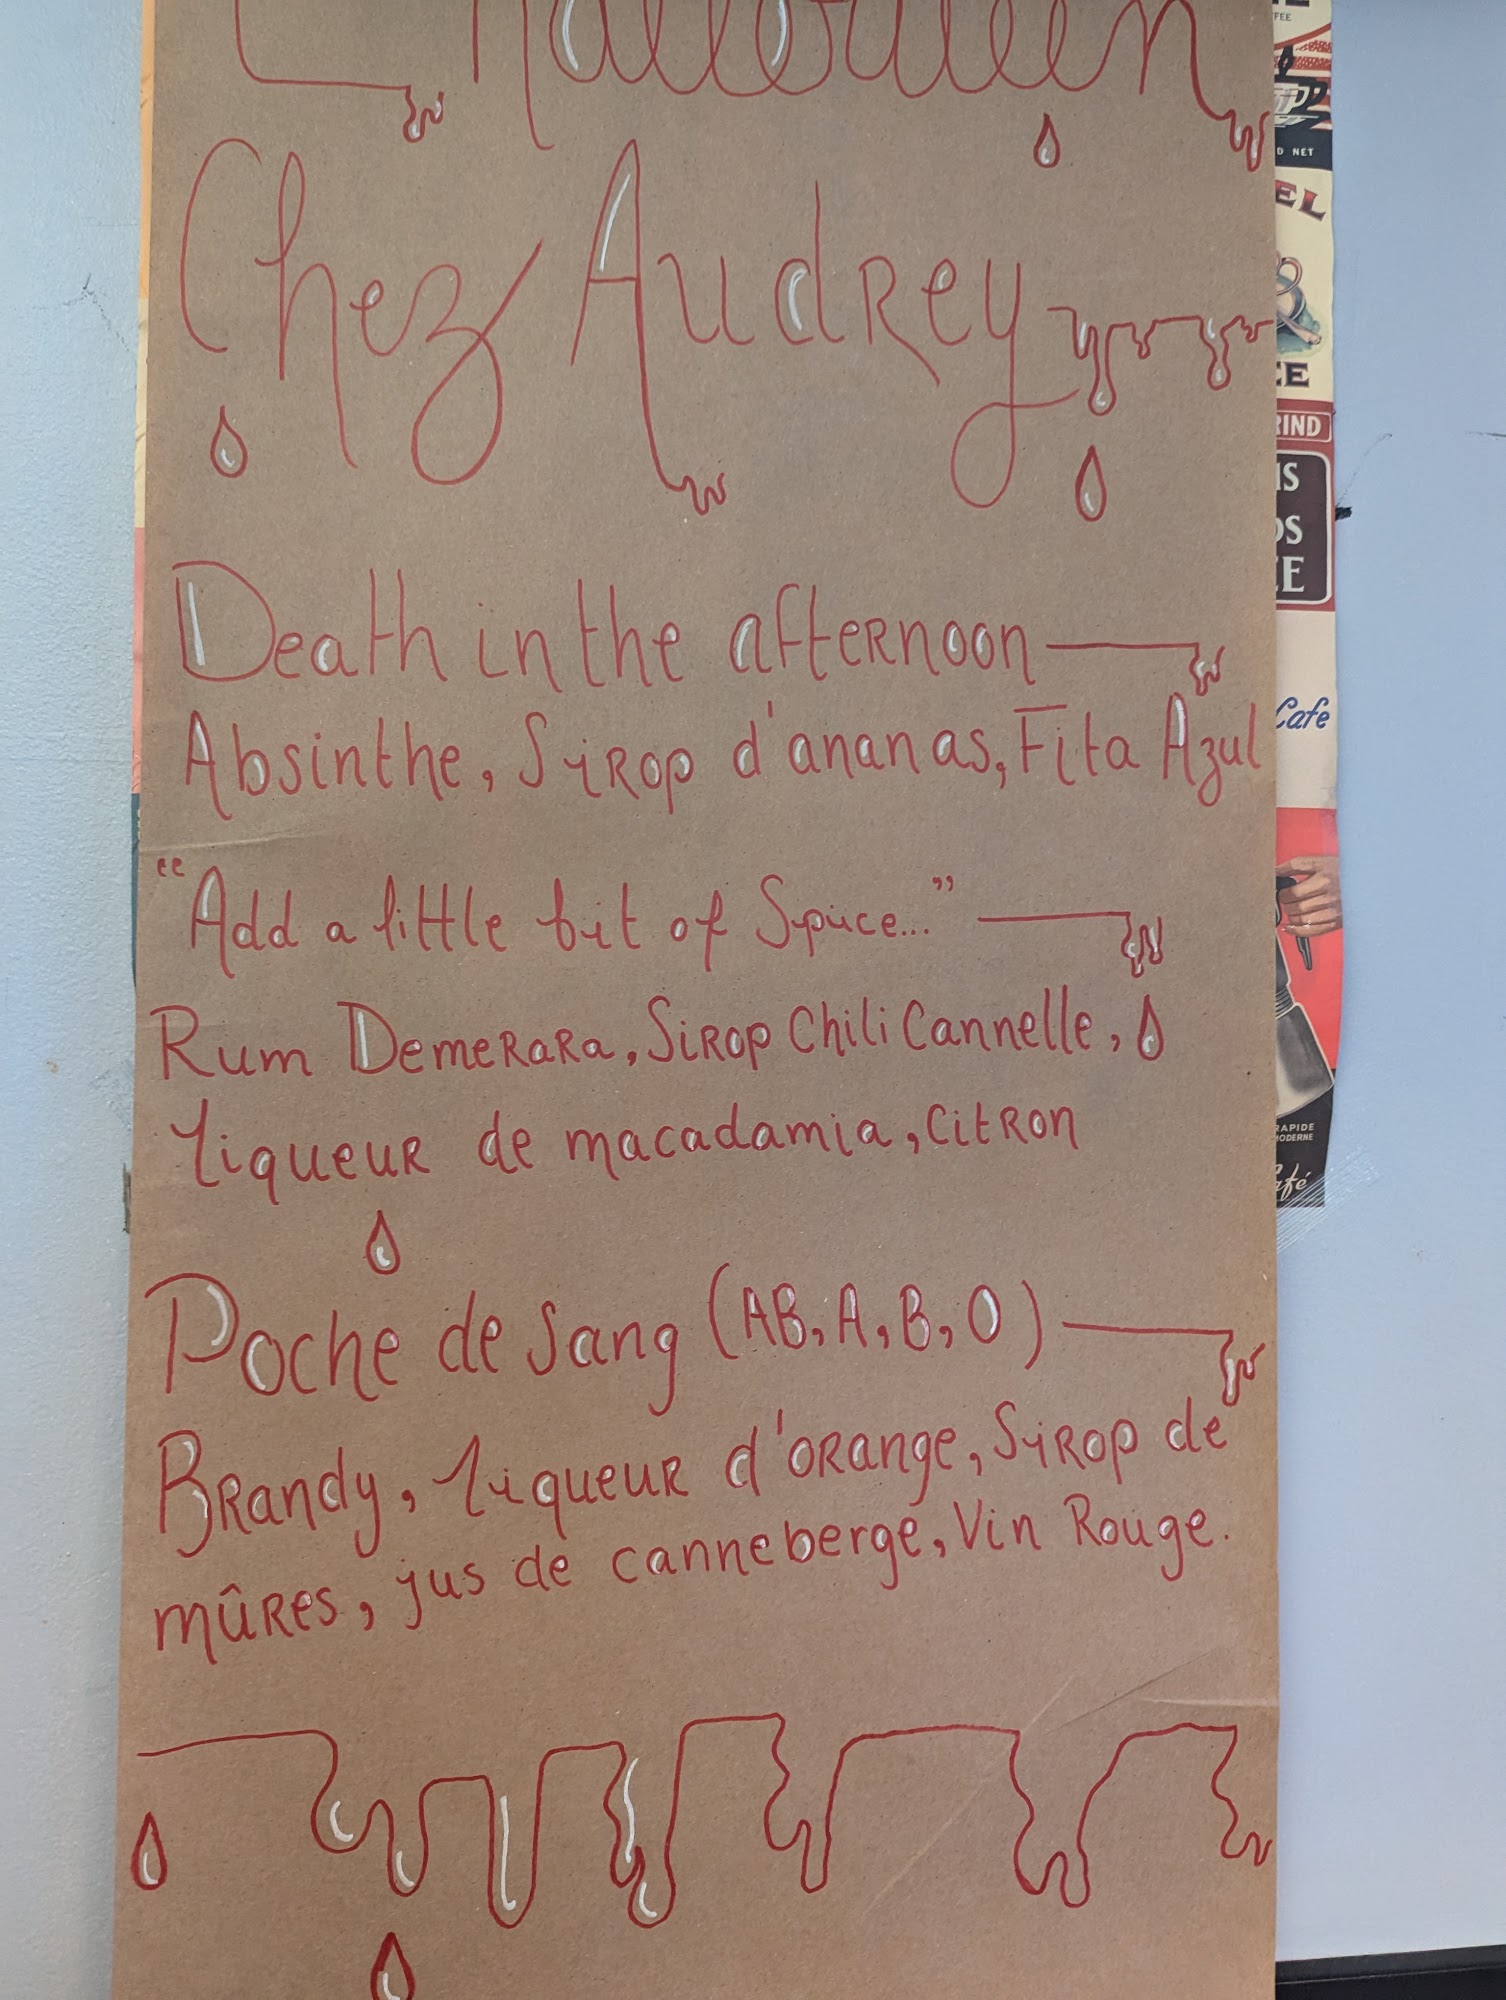 L'Halloween
Chez Audrey
Death in the afternoon
Absinthe, Sirop d'ananas, Fita Azul
"Add a little bit of Spice..."
Rum Demerara, Sirop Chili Cannelle,
liqueur de macadamia, Citron
Poche de Sang (AB, A, B, O)
Brandy, liqueur d'orange, Sirop de
mûres, jus de canneberge, Vin Rouge.
D NET
EL
Cafe
RAPIDE
MODERNE